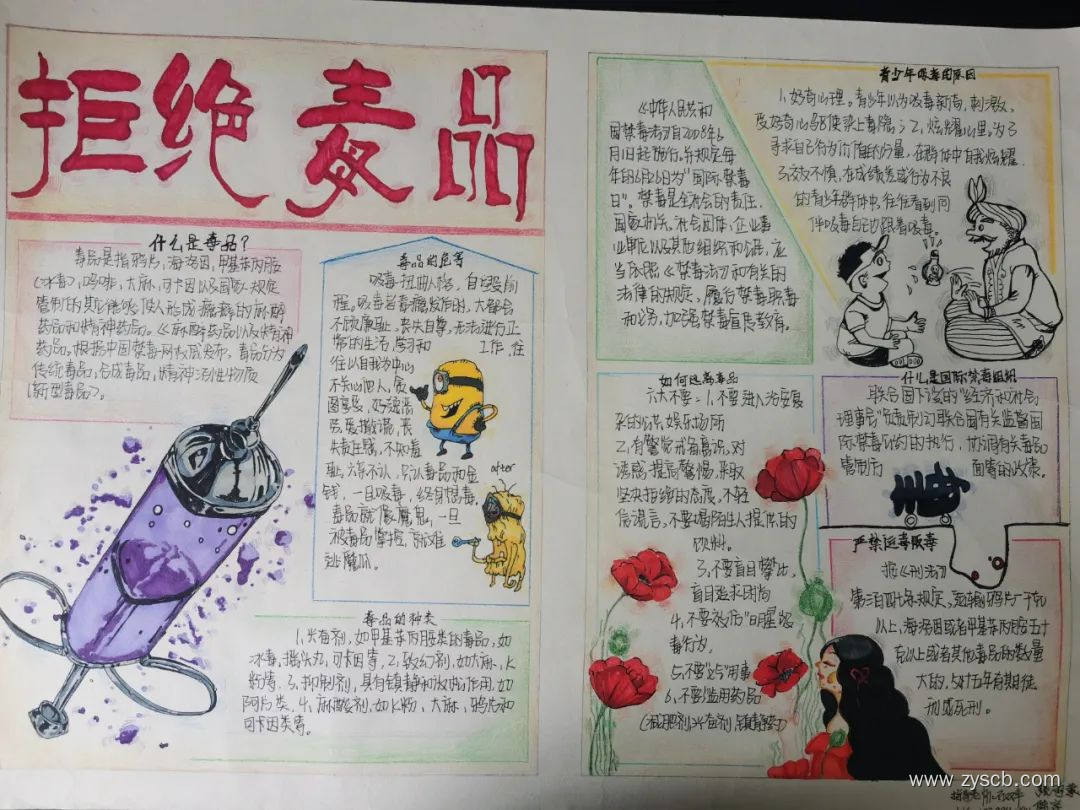 拒绝毒品
什么是毒品?
毒品是指鸦片,海洛因,甲基苯丙胺
(冰毒),吗啡,大麻,可卡因以及国家规定
管制的其它能够使人形成瘾癖的麻醉
药品和精神药品。《麻醉药品以及精神
药品。根据中国禁毒网权威发布,毒品分为
传统毒品,合成毒品,精神活性物质
(新型毒品)。
毒品的危害
吸毒扭曲人格,自毁前
程。吸毒者毒瘾发作时,大都会
不顾廉耻,丧失自尊,无法进行正
常的生活,学习和 工作,往
往以自我为中心
不关心他人,
责任感,不知羞
耻,六亲不认,只认毒品和金
钱,一旦吸毒,终身想毒,
毒品就像魔鬼,一旦
被毒品掌控,就难
逃魔爪。
after
毒品的种类
1,兴奋剂,如甲基苯丙胺类的毒品,如
冰毒,摇头丸,可卡因等,2,致幻剂,如大麻,K
粉等,3,抑制剂,具有镇静和放松作用,如
阿片类,4,麻醉剂,如K粉,大麻,鸦片和
可卡因类等。
《中华人民共和
国禁毒法》自2008年6
月1日起施行。并规定每
年的6月26日为"国际禁毒
日"。禁毒是全社会的责任,
国家机关,社会团体,企业事
业单位以及其他组织和公民,应
当依照《禁毒法》和有关的
法律的规定,履行禁毒职责
和义务,加强禁毒宣传教育。
青少年吸毒的原因
1,好奇心理。青少年以为吸毒新奇,刺激,
受好奇心驱使染上毒瘾;2,炫耀心里。为了
寻求自己行为价值的分量,在群体中自我炫耀
3,交友不慎,在成绩差或行为不良
的青少年群体中,往往看到同
伴吸毒自己也跟着吸毒。
如何远离毒品
六大不要:1,不要进入治安复
杂的公共娱乐场所
2,有警觉戒备意识,对
诱惑提高警惕,采取
坚决拒绝的态度,不轻
信谎言,不要喝陌生人提供的
饮料。
3,不要盲目攀比,
盲目追求时尚
4,不要效仿"明星"吸
毒行为,
5,不要"以气"用事
6,不要滥用药品
(减肥剂,兴奋剂,镇静等)
什么是国际禁毒组织
联合国下设的"经济和社会
理事会"负责制订联合国有关监督国
际禁毒公约的执行,协调有关毒品
管制方 面等的政策。
毒
严禁运毒贩毒
据《刑法》
第三百四十七条规定,运输鸦片一千克
以上,海洛因或者甲基苯丙胺五十
克以上或者其他毒品的数量
大的,处十五年有期徒
刑或死刑。
www.zyscb.com